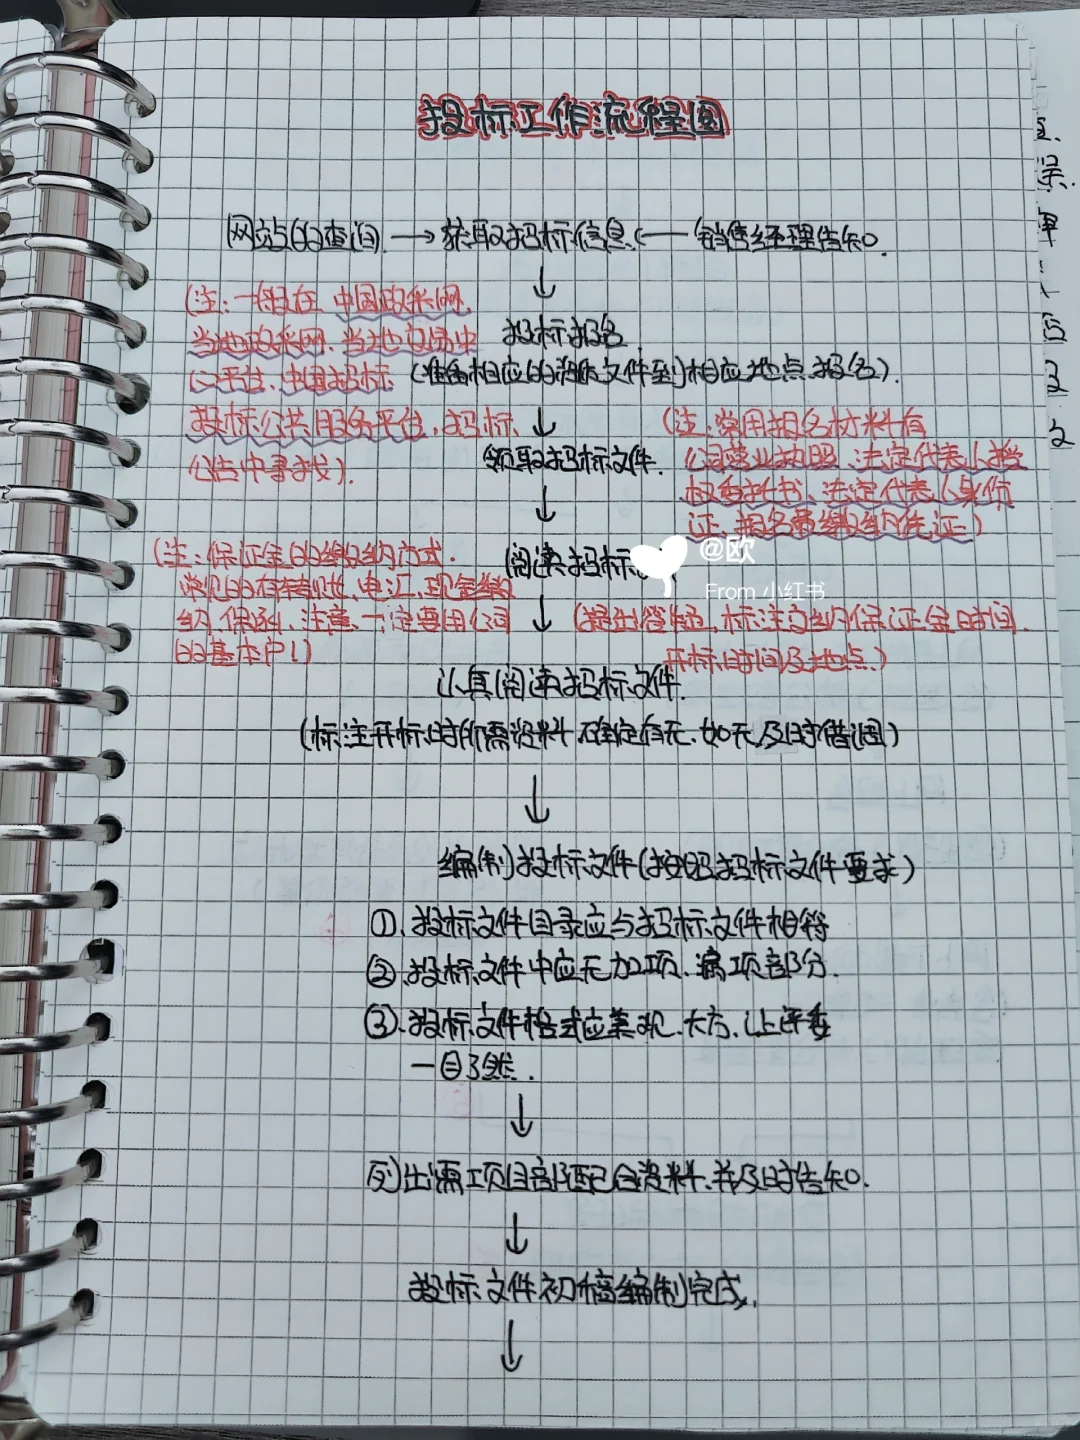 投标工作流程图
网站的查询 → 获取招标信息 ← 销售经理告知.
↓
(注:一般在 中国政采网、
当地政采网、当地交易中
心平台、中国招标
投标公共服务平台、招标
公告中寻找).
投标报名.
(准备相应的报名文件到相应地点报名).
↓
领取招标文件.
(注:常用报名材料有
公司营业执照、法定代表人授
权委托书、法定代表人身份
证、报名费缴纳凭证)
↓
阅读招标
(注:保证金的缴纳方式.
常见的有转账、电汇、现金缴
纳、保函、注意、一定要用公司
的基本户!)
↓
(提出答疑、标注交纳保证金时间.
开标时间及地点.)
认真阅读招标文件.
(标注开标时所需资料,确定有无,如无及时借调)
↓
编制投标文件(按照招标文件要求)
①.投标文件目录应与招标文件相符
②.投标文件中应无加项、漏项部分.
③.投标文件格式应美观、大方、让评委
一目了然.
↓
列出需项目部配合资料、并及时告知.
↓
投标文件初稿编制完成.
↓
@欧
From 小红书